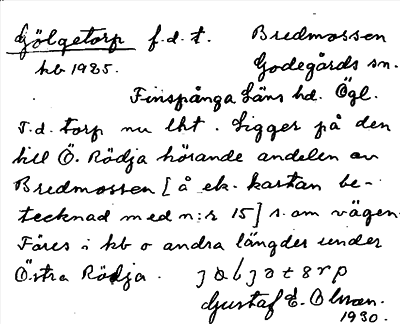 Gölgetorp f.d.t. Bredmossen
kb 1925. Godegårds sn.
Finspånga Läns hd. Ögl.
T.d. torp nu lht. Ligger på den
till Ö. Rödja hörande andelen av
Bredmossen [å ek. kartan be-
tecknad med n:r 15] s. om vägen.
Föres i kb o andra längder under
Östra Rödja.
Gustaf E. Olsson.
1930.